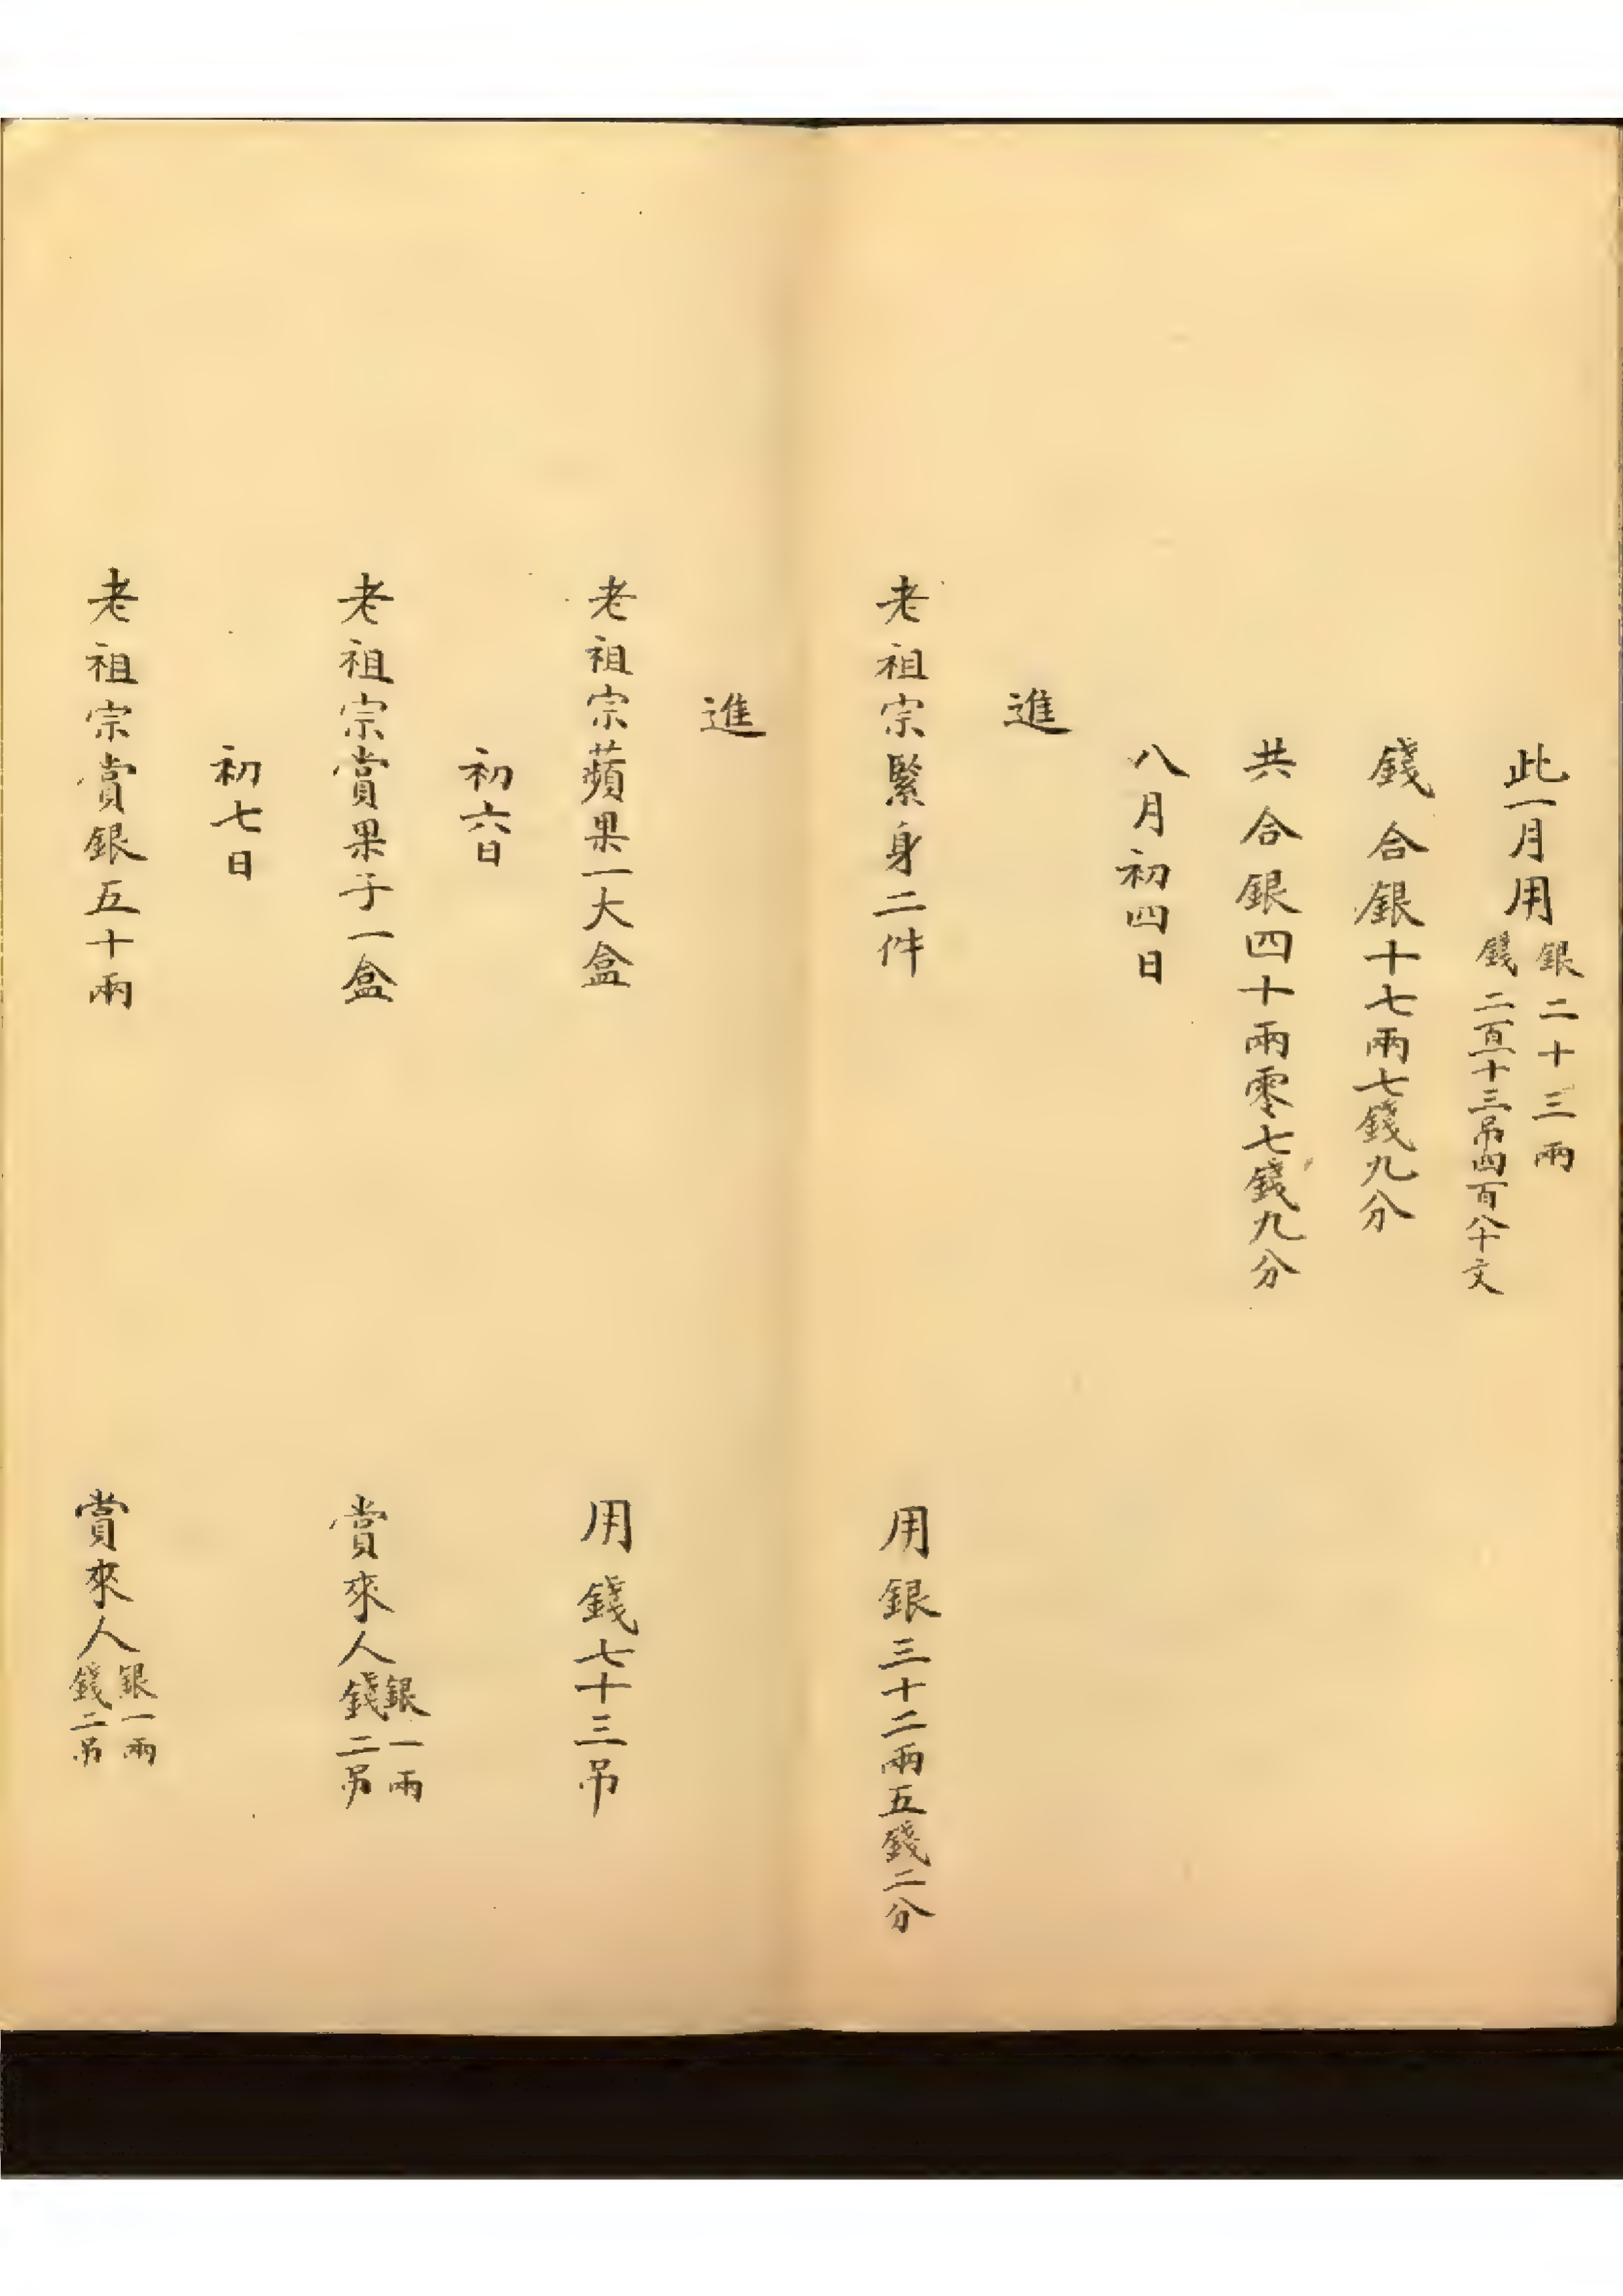 此一月用銀二十三兩
錢二百一十三吊四百八十文
錢合銀十七兩七錢九分
共合銀四十兩零七錢九分
八月初四日
進
老祖宗緊身二件
用銀三十二兩五錢二分
進
老祖宗蘋果一大盒
用錢七十三吊
初六日
老祖宗賞果子一盒
賞來人銀一兩
錢二吊
初七日
老祖宗賞銀五十兩
賞來人銀一兩
錢二吊